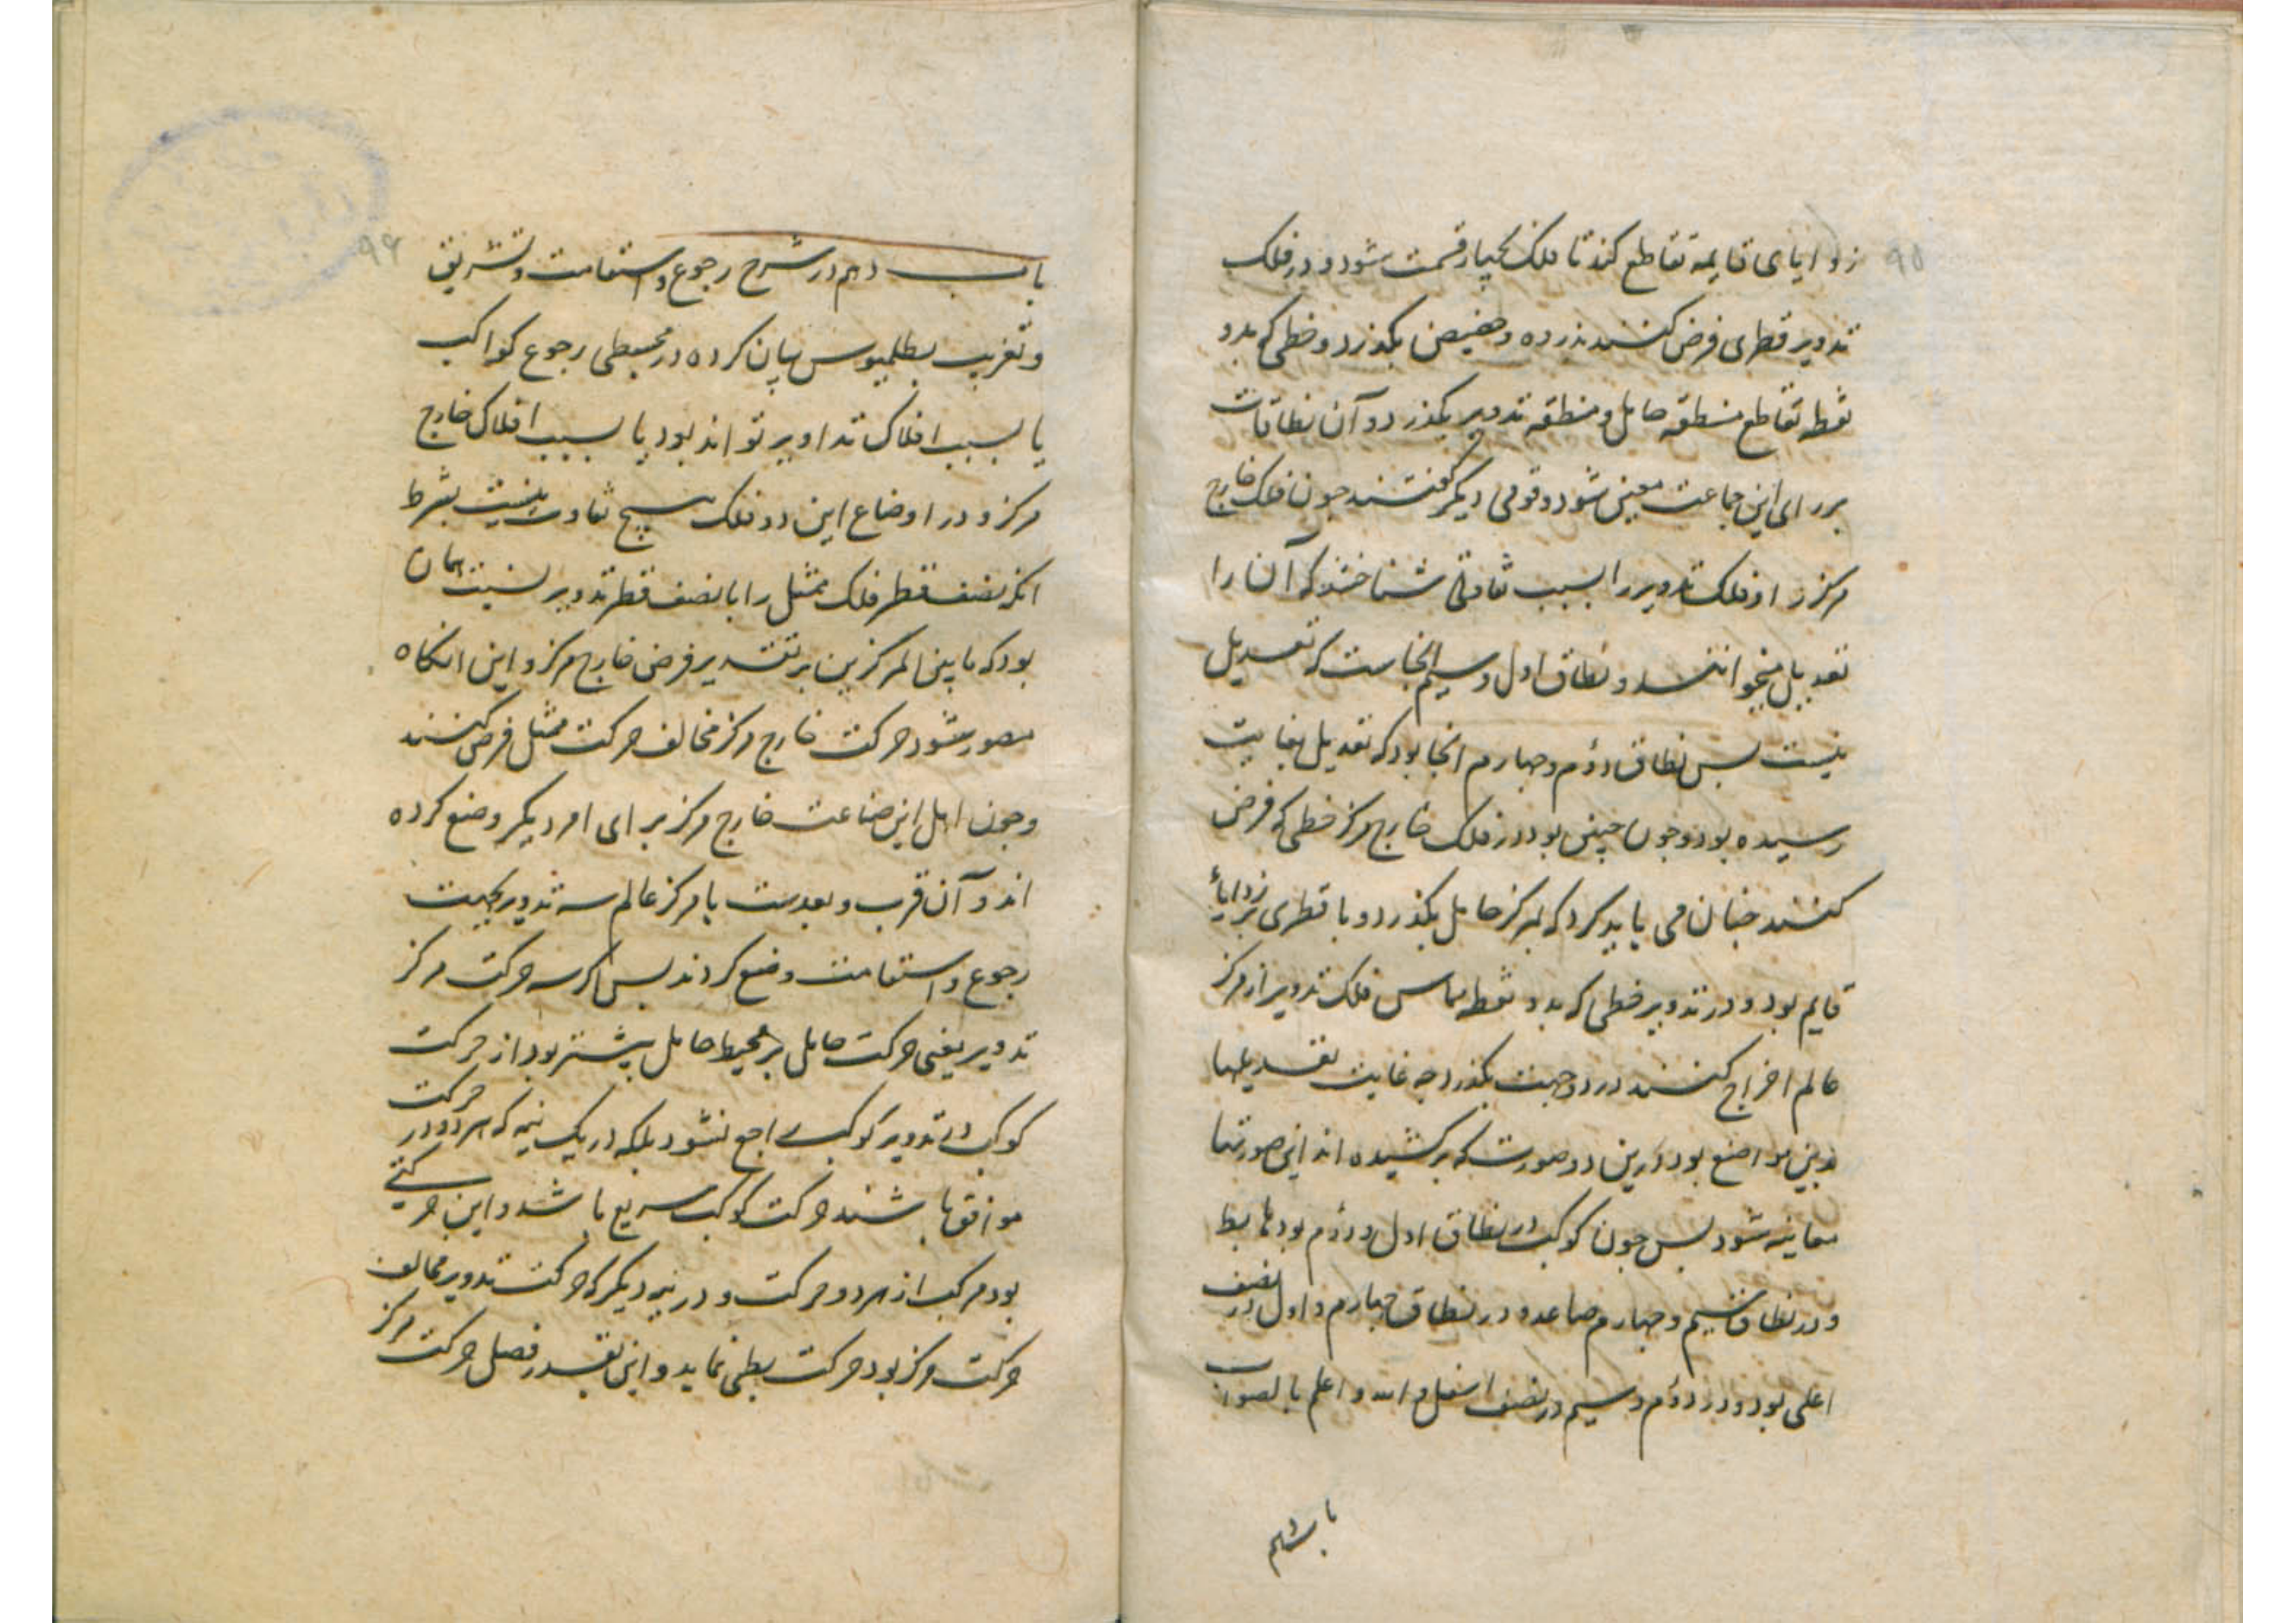 ۹۵
زوایای قایمه تقاطع کند تا فلک بچهار قسمت شود و در فلک
تدویر قطری فرض کنند بذروه و حضیض بکذرد و خطی که بدو
نقطه تقاطع منطقه حامل و منطقه تدویر بکذرد و آن نطاقات
بر رای این جماعت معین شود و قومی دیکر کفتند جون فلک خارج
مرکز را و فلک تدویر را بسبب تفاوتی شناختند که آن را
تعدیل میخوانند و نطاق اول و سیم انجاست که تعدیل
نیست بس نطاق دوم و جهارم انجا بود که تعدیل بغایت
رسیده بود و جون جنین بود در فلک خارج مرکز خطی که فرض
کنند جنان می باید کرد که بمرکز حامل بکذرد و با قطری بزوایاء
قایم بود و در تدویر خطی که بدو نقطه مماس فلک تدویر از مرکز
عالم اخراج کنند در دو جهت بکذرد جه غایت تعدیلها
بدین مواضع بود و درین دو صورت که برکشیده اند این صورتها
معاینه شود بس جون کوکب در نطاق اول و دوم بود هابط
و در نطاق سیم و جهارم صاعد و در نطاق جهارم و اول در نصف
اعلی بود و در دوم و سیم در نصف اسفل و الله اعلم بالصواب
باب دهم
۹۶
باب دهم در شرح رجوع و استقامت و تشریق
و تغریب بطلمیوس بیان کرده در مجسطی رجوع کواکب
یا بسبب افلاک تداویر تواند بود یا بسبب افلاک خارج
مرکز و در اوضاع این دو فلک هیچ تفاوت نیست بشرط
انکه نصف قطر فلک ممثل را با نصف قطر تدویر نسبت همان
بود که ما بین المرکزین بر تقدیر فرض خارج مرکز و این انکاه
متصور شود حرکت خارج مرکز مخالف حرکت ممثل فرض کنند
و جون اهل این صناعت خارج مرکز برای امر دیکر وضع کرده
اند و آن قرب و بعدست با مرکز عالم سه تدویر بجهت
رجوع و استقامت وضع کردند بس اکر سه حرکت مرکز
تدویر یعنی حرکت حامل بر محیط حامل بیشتر بود از حرکت
کوکب تدویر کوکب راجع نشود بلکه در یک نیمه که هر دو در حرکت
موافق باشند حرکت کوکب سریع باشد و این حرکتی
بود مرکب از هر دو حرکت و در نیمه دیکر که حرکت تدویر مخالف
حرکت مرکز بود حرکت بطی نماید و این بقدر فضل حرکت مرکز